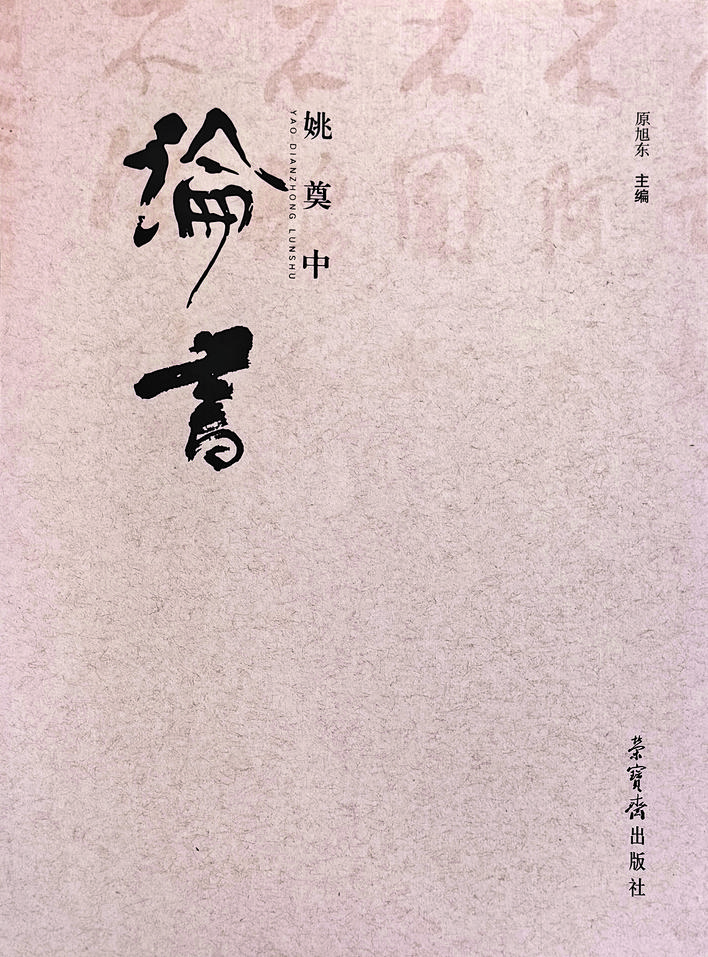 原旭东 主编
姚奠中
YAO DIANZHONG LUNSHU
論書
榮寶齋出版社